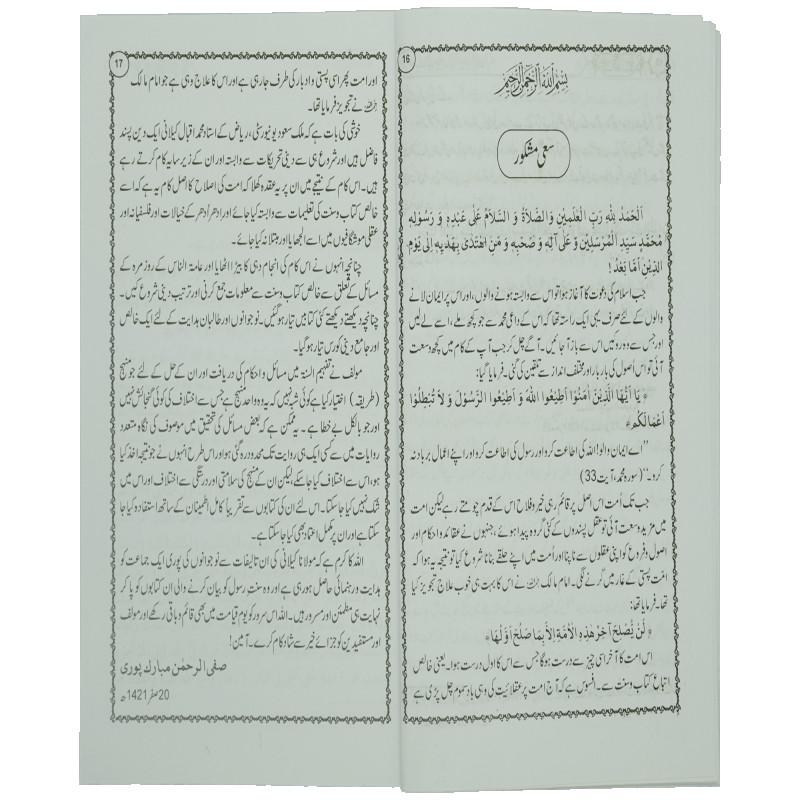 16
بِسْمِ اللهِ الرَّحْمٰنِ الرَّحِيْمِ
سعی مشکور
اَلْحَمْدُ لِلّٰهِ رَبِّ الْعٰلَمِيْنَ وَ الصَّلَاةُ وَ السَّلَامُ عَلٰى عَبْدِهٖ وَ رَسُوْلِهٖ
مُحَمَّدٍ سَيِّدِ الْمُرْسَلِيْنَ وَ عَلٰى آلِهٖ وَ صَحْبِهٖ وَ مَنِ اهْتَدٰى بِهَدْيِهٖ اِلٰى يَوْمِ
الدِّيْنِ اَمَّا بَعْدُ !
جب اسلام کی دعوت کا آغاز ہوا تو اس سے وابستہ ہونے والوں، اور اس پر ایمان لانے
والوں کے لئے صرف یہی ایک راستہ تھا کہ اس کے داعی محمد سے جو کچھ ملے، اسے لے لیں
اور جس سے وہ روکیں اس سے باز آ جائیں۔ آگے چل کر جب آپ کے کام میں کچھ وسعت
آئی تو اس اُصول کی بار بار اور مختلف انداز سے تلقین کی گئی۔ فرمایا گیا:
﴿ يَا أَيُّهَا الَّذِيْنَ اٰمَنُوْا اَطِيْعُوا اللهَ وَ اَطِيْعُوا الرَّسُوْلَ وَ لَا تُبْطِلُوْا
اَعْمَالَكُمْ ﴾
”اے ایمان والو! اللہ کی اطاعت کرو اور رسول کی اطاعت کرو اور اپنے اعمال برباد نہ
کرو۔“ (سورہ محمد، آیت 33)
جب تک اُمت اس اصل پر قائم رہی خیر و فلاح اس کے قدم چومتے رہے لیکن امت
میں مزید وسعت آئی تو عقل پسندوں کے کئی گروہ پیدا ہوئے، جنہوں نے عقائد و احکام اور
اصول و فروع کو اپنی عقلوں سے ناپنا اور اُمت میں اپنے حلقے بنانا شروع کیا تو نتیجہ یہ ہوا کہ
اُمت پستی کے غار میں گرنے لگی۔ امام مالک رحمہ اللہ نے اس کا بہت ہی خوب علاج تجویز کیا
تھا۔ فرمایا تھا:
﴿ لَنْ يُّصْلِحَ آخِرَ هٰذِهِ الْاُمَّةِ اِلَّا بِمَا صَلُحَ اَوَّلُهَا ﴾
اس امت کا آخر اسی چیز سے درست ہوگا جس سے اس کا اول درست ہوا۔ یعنی خالص
اتباع کتاب و سنت سے۔ افسوس ہے کہ آج امت پر عقلائیت کی وہی باد سموم چل پڑی ہے
17
اور امت پھر اسی پستی و ادبار کی طرف جا رہی ہے اور اس کا علاج وہی ہے جو امام مالک
رحمہ اللہ نے تجویز فرمایا تھا۔
خوشی کی بات ہے کہ ملک سعود یونیورسٹی، ریاض کے استاد محمد اقبال کیلانی ایک دین پسند
فاضل ہیں اور شروع ہی سے دینی تحریکات سے وابستہ اور ان کے زیر سایہ کام کرتے رہے
ہیں۔ اس کام کے نتیجے میں ان پر یہ عقدہ کھلا کہ امت کی اصلاح کا اصل کام یہ ہے کہ اسے
خالص کتاب و سنت کی تعلیمات سے وابستہ کیا جائے اور ادھر اُدھر کے خیالات اور فلسفیانہ اور
عقلی موشگافیوں میں اسے الجھایا اور مبتلا نہ کیا جائے۔
چنانچہ انہوں نے اس کام کی انجام دہی کا بیڑا اٹھایا اور عامۃ الناس کے روزمرہ کے
مسائل کے تعلق سے خالص کتاب و سنت سے معلومات جمع کرنی اور ترتیب دینی شروع کیں۔
چنانچہ دیکھتے دیکھتے کئی کتابیں تیار ہو گئیں۔ نوجوانوں اور طالبان ہدایت کے لئے ایک خالص
اور جامع دینی کورس تیار ہو گیا۔
مولف نے تفہیم السنۃ میں مسائل و احکام کی دریافت اور ان کے حل کے لئے جو منہج
(طریقہ) اختیار کیا ہے کوئی شبہ نہیں کہ یہ وہ واحد منہج ہے جس سے اختلاف کی کوئی گنجائش نہیں
اور جو بالکل بے خطا ہے۔ یہ ممکن ہے کہ بعض مسائل کی تحقیق میں موصوف کی نگاہ متعدد
روایات میں سے کسی ایک ہی روایت تک محدود رہ گئی ہو اور اس طرح انہوں نے جو نتیجہ اخذ کیا
ہو، اس سے اختلاف کیا جا سکے، لیکن ان کے منہج کی سلامتی اور درستگی سے اختلاف اور اس میں
شک نہیں کیا جا سکتا۔ اس لئے ان کی کتابوں سے تقریباً کامل اطمینان کے ساتھ استفادہ کیا جا
سکتا ہے اور ان پر مکمل اعتماد بھی کیا جا سکتا ہے۔
اللہ کا کرم ہے کہ مولانا کیلانی کی ان تالیفات سے نوجوانوں کی پوری ایک جماعت کو
ہدایت و رہنمائی حاصل ہو رہی ہے اور وہ سنت رسول کو بیان کرنے والی ان کتابوں کو پا کر
نہایت ہی مطمئن اور مسرور ہیں۔ اللہ اس سرور کو یوم قیامت میں بھی قائم و باقی رکھے اور مولف
اور مستفیدین کو جزائے خیر سے شاد کام کرے۔ آمین!
صفی الرحمٰن مبارک پوری
20 صفر 1421ھ